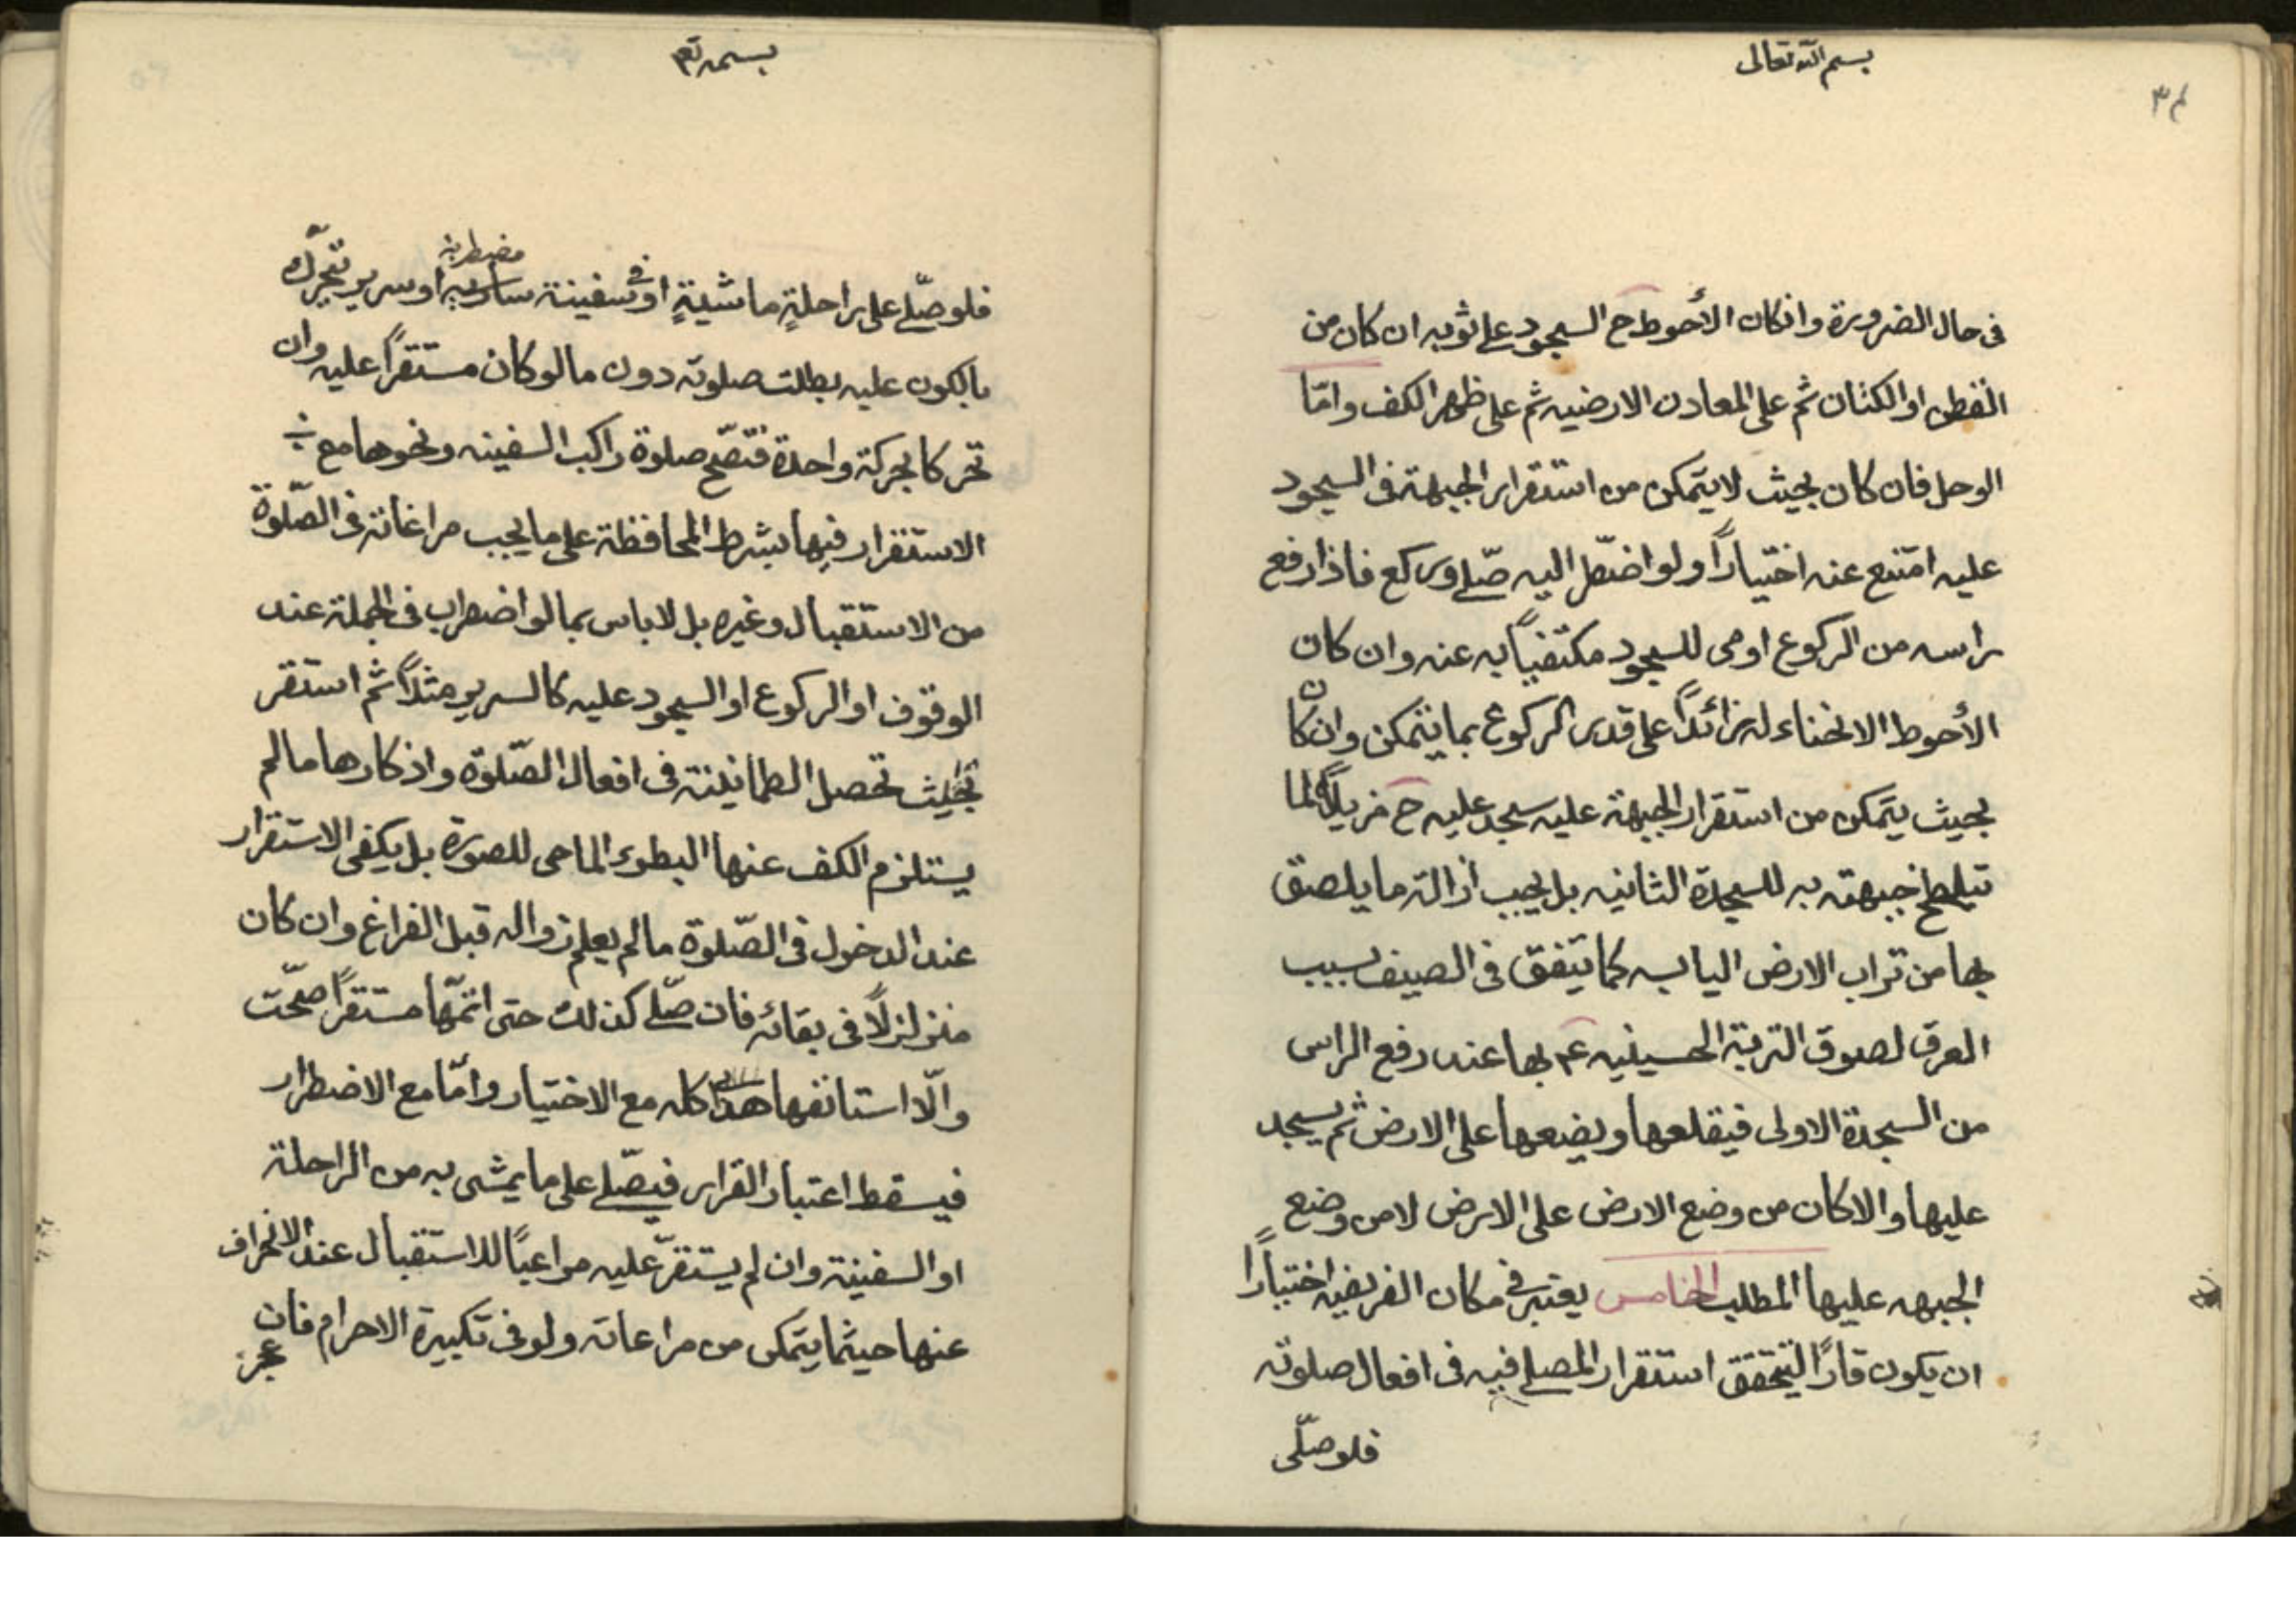 بسم الله تعالى
فى حال الضرورة وانكان الأحوط ح السجود على ثوبه ان كان من
القطن او الكتان ثم على المعادن الارضيه ثم على ظهر الكف وامّا
الوحل فان كان بحيث لا يتمكن من استقرار الجبهة فى السجود
عليه امتنع عنه اختياراً ولو اضطّر اليه صلّى وركع فاذا رفع
راسه من الركوع اومى للسجود مكتفياً به عنه وان كان
الأحوط الانحناء له زائداً على قدر الركوع بما يتمكن وان كان
بحيث يتمكن من استقرار الجبهة عليه سجد عليه ح مزيلاً لما
تلطخ جبهته به للسجدة الثانيه بل يجب ازالة ما يلصق
بها من تراب الارض اليابسه كما يتفق فى الصيف بسبب
العرق لصوق التربة الحسينيه ع بها عند رفع الراس
من السجدة الاولى فيقلعها ويضعها على الارض ثم يسجد
عليها والا كان من وضع الارض على الارض لا من وضع
الجبهه عليها المطلب الخامس يعتبر فى مكان الفريضه اختياراً
ان يكون قارّاً ليتحقق استقرار المصلى فيه فى افعال صلوته
فلو صلّى
بسمه تعم
فلو صلّى على راحلةٍ ماشيةٍ او فى سفينة سارية مضطربة او سرير تحرّك
بالكون عليه بطلت صلوته دون ما لو كان مستقراً عليه وان
تحركا بحركة واحدة فتصّح صلوة راكب السفينه ونحوها مع
الاستقرار فيها بشرط المحافظة على ما يجب مراعاته فى الصّلوة
من الاستقبال وغيره بل لا باس بما لو اضطرب فى الجملة عند
الوقوف او الركوع او السجود عليه كالسرير مثلاً ثم استقر
بحيث تحصل الطمانينة فى افعال الصّلوة واذكارها ما لم
يستلزم الكف عنها البطوء الماحى للصورة بل يكفى الاستقرار
عند الدخول فى الصّلوة ما لم يعلم زواله قبل الفراغ وان كان
متزلزلاً فى بقائه فان صلّى كذلك حتى اتمّها مستقراً صحّت
والّا استانفها هذا كله مع الاختيار وامّا مع الاضطرار
فيسقط اعتبار القرار فيصّلى على ما يمشى به من الراحلة
او السفينة وان لم يستقرّ عليه مراعياً للاستقبال عند الانحراف
عنها حيثما يتمكن من مراعاته ولو فى تكبيرة الاحرام فان
عجز